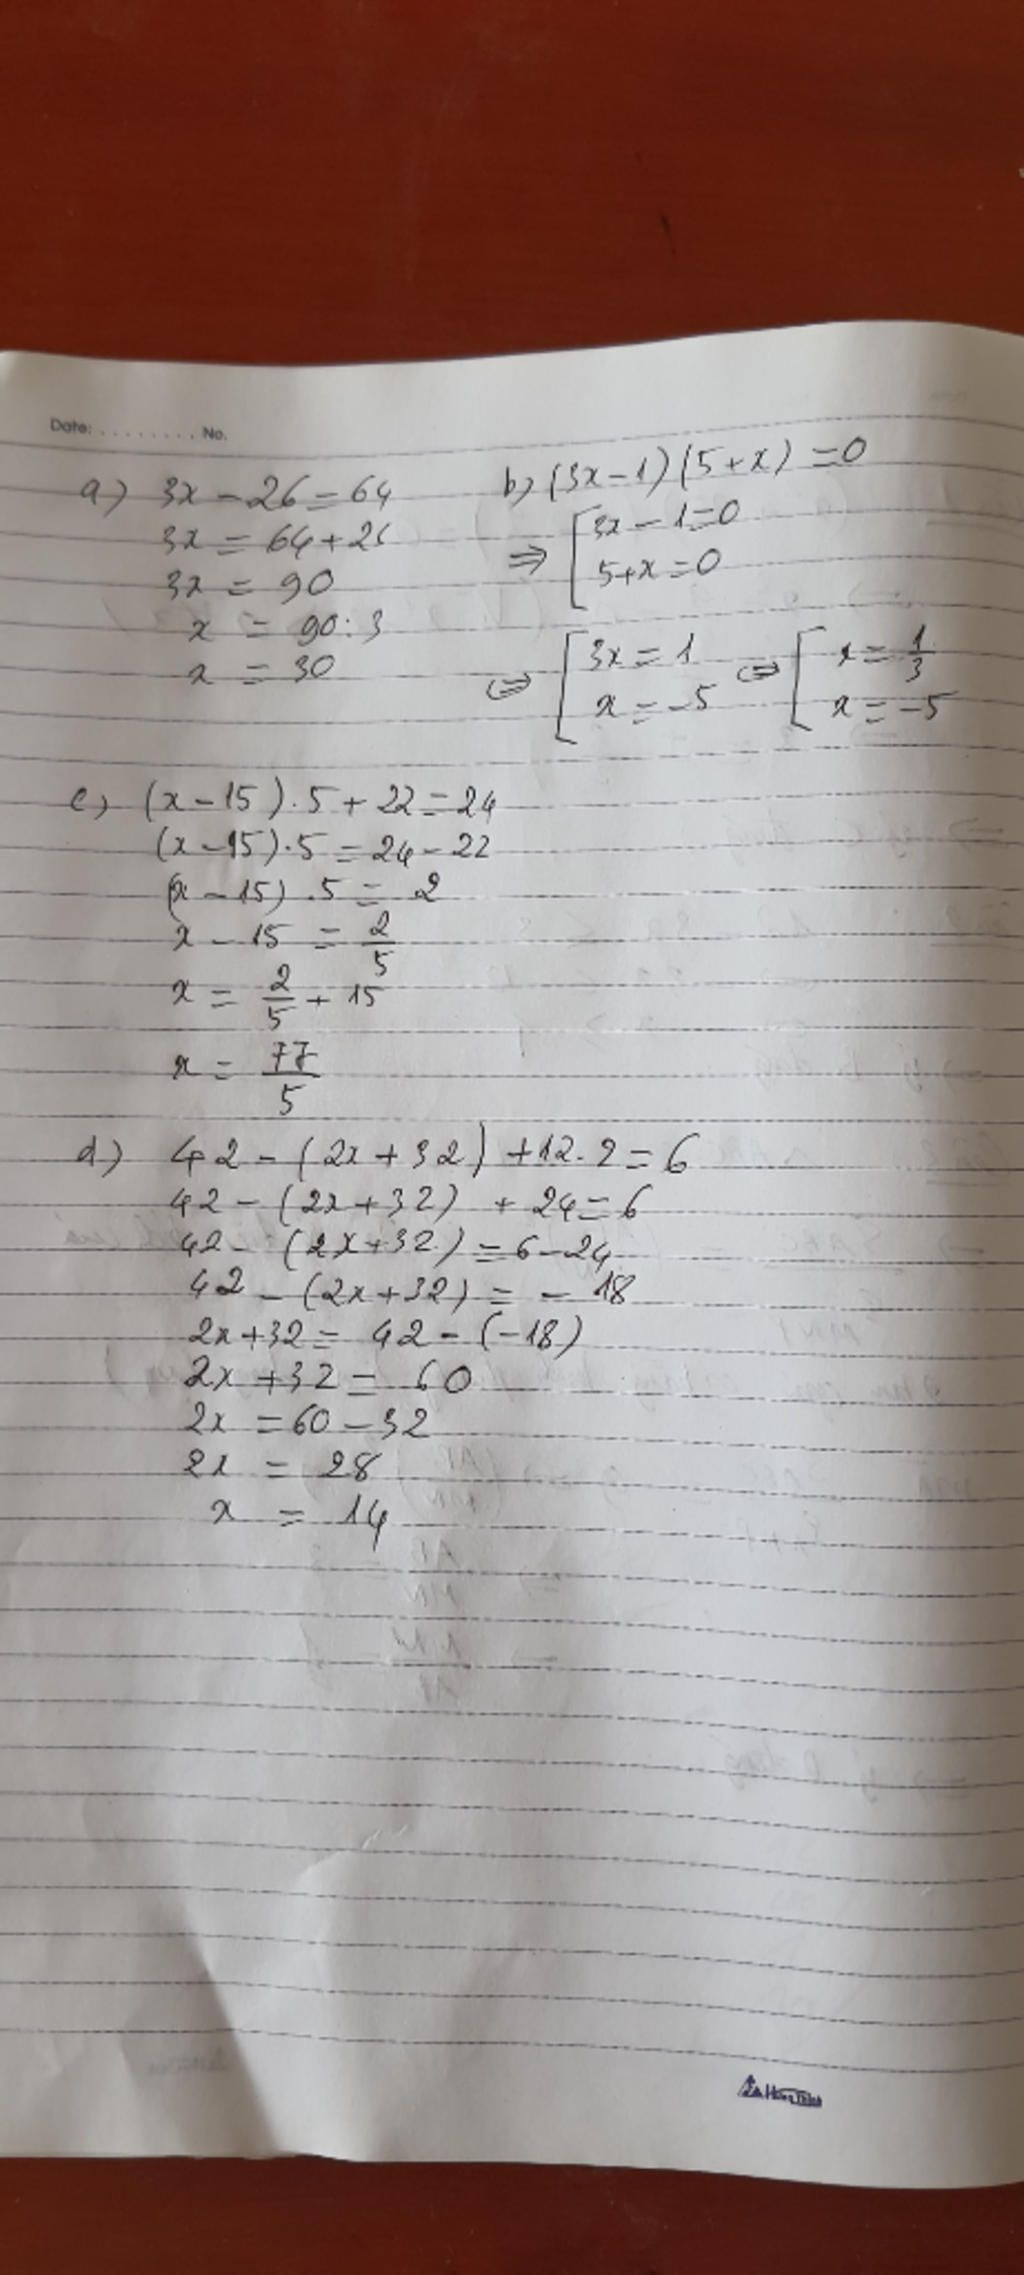 Date: ........ No.
a) 3x - 26 = 64
3x = 64 + 26
3x = 90
x = 90 : 3
x = 30
b) (3x - 1)(5 + x) = 0
=> [ 3x - 1 = 0
5 + x = 0
<=> [ 3x = 1
x = -5
<=> [ x = 1/3
x = -5
c) (x - 15) . 5 + 22 = 24
(x - 15) . 5 = 24 - 22
(x - 15) . 5 = 2
x - 15 = 2/5
x = 2/5 + 15
x = 77/5
d) 42 - (2x + 32) + 12 . 2 = 6
42 - (2x + 32) + 24 = 6
42 - (2x + 32) = 6 - 24
42 - (2x + 32) = - 18
2x + 32 = 42 - (-18)
2x + 32 = 60
2x = 60 - 32
2x = 28
x = 14